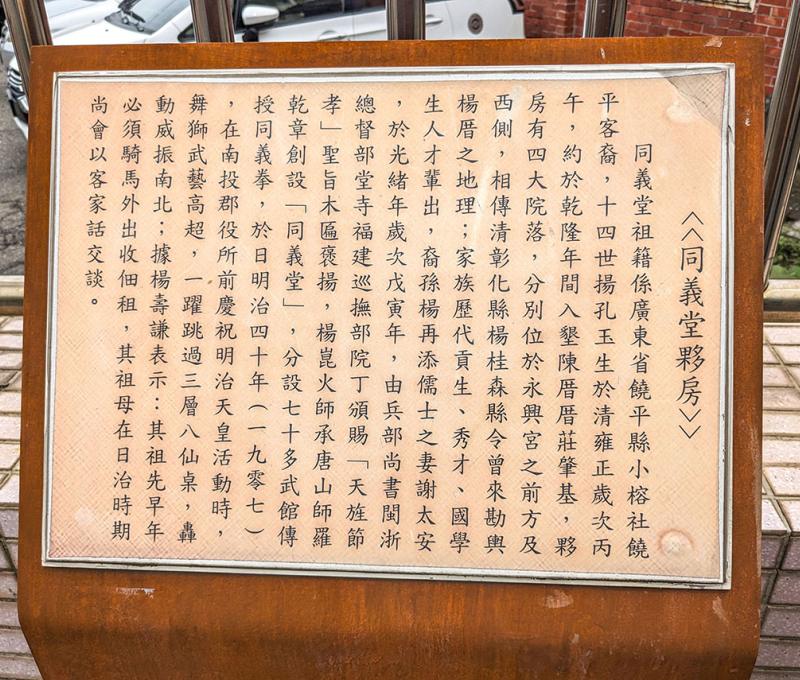 ︽同義堂夥房︾
同義堂祖籍係廣東省饒平縣小榕社饒
平客裔，十四世揚孔玉生於清雍正歲次丙
午，約於乾隆年間入墾陳厝厝莊肇基，夥
房有四大院落，分別位於永興宮之前方及
西側，相傳清彰化縣楊桂森縣令曾來勘輿
楊厝之地理；家族歷代貢生、秀才、國學
生人才輩出，裔孫楊再添儒士之妻謝太安
，於光緒年歲次戊寅年，由兵部尚書閩浙
總督部堂寺福建巡撫部院丁頒賜「天旌節
孝」聖旨木匾褒揚，楊崑火師承唐山師羅
乾章創設「同義堂」，分設七十多武館傳
授同義拳，於日明治四十年（一九零七）
，在南投郡役所前慶祝明治天皇活動時，
舞獅武藝高超，一躍跳過三層八仙桌，轟
動威振南北；據楊壽謙表示：其祖先早年
必須騎馬外出收佃租，其祖母在日治時期
尚會以客家話交談。